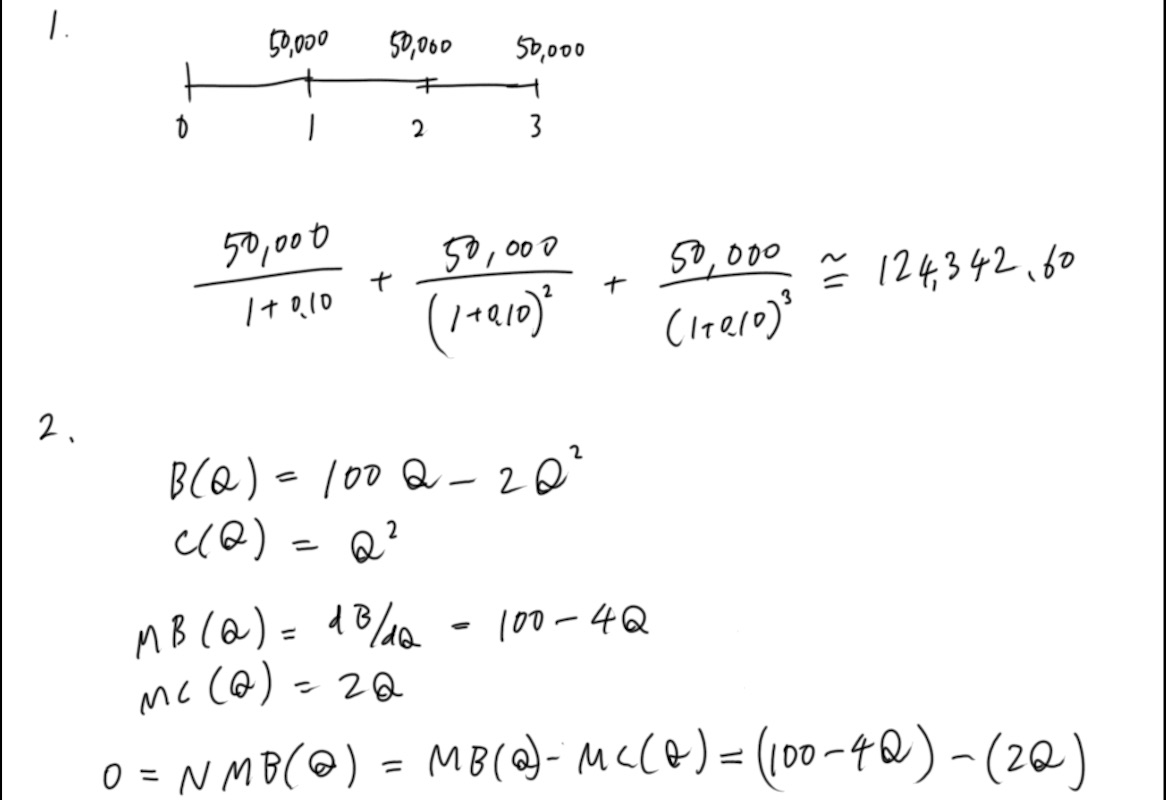 1.
50,000 50,000 50,000
0 1 2 3
50,000/(1+0.10) + 50,000/(1+0.10)² + 50,000/(1+0.10)³ ≅ 124,342.60
2.
B(Q) = 100 Q - 2Q²
C(Q) = Q²
MB(Q) = dB/dQ = 100 - 4Q
MC(Q) = 2Q
0 = NMB(Q) = MB(Q) - MC(Q) = (100 - 4Q) - (2Q)